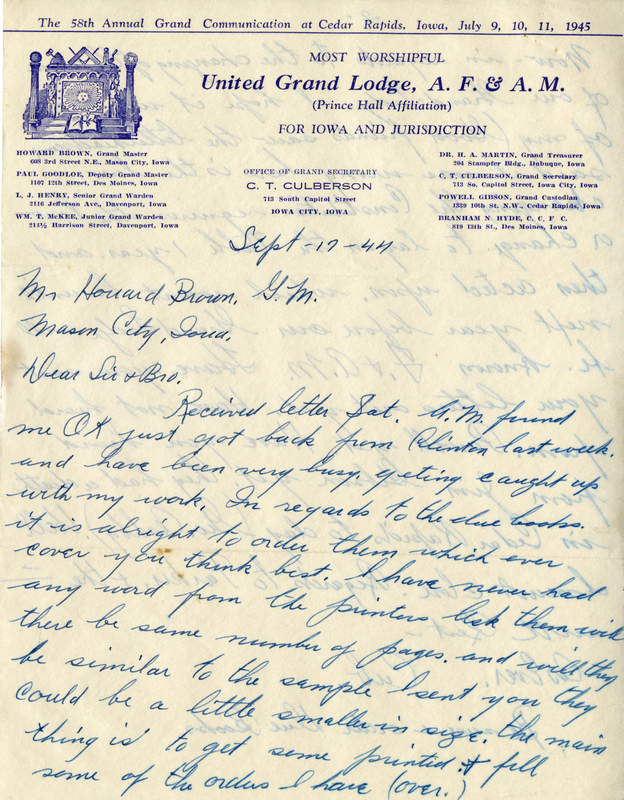 The 58th Annual Grand Communication at Cedar Rapids, Iowa, July 9, 10, 11, 1945
MOST WORSHIPFUL
United Grand Lodge, A. F. & A. M.
(Prince Hall Affiliation)
FOR IOWA AND JURISDICTION
HOWARD BROWN, Grand Master
608 3rd Street N.E., Mason City, Iowa
PAUL GOODLOE, Deputy Grand Master
1107 12th Street, Des Moines, Iowa
L. J. HENRY, Senior Grand Warden
2116 Jefferson Ave., Davenport, Iowa
WM. T. McKEE, Junior Grand Warden
214½ Harrison Street, Davenport, Iowa
OFFICE OF GRAND SECRETARY
C. T. CULBERSON
713 South Capitol Street
IOWA CITY, IOWA
DR. H. A. MARTIN, Grand Treasurer
204 Stampfer Bldg., Dubuque, Iowa
C. T. CULBERSON, Grand Secretary
713 So. Capitol Street, Iowa City, Iowa
POWELL GIBSON, Grand Custodian
1339 10th St. N.W., Cedar Rapids, Iowa
BRANHAM N. HYDE, C. C. F. C.
819 13th St., Des Moines, Iowa
Sept - 17 - 44
Mr Howard Brown, G.M.
Mason City, Iowa.
Dear Sir & Bro.
Received letter Sat. G.M. found
me OK just got back from Clinton last week.
and have been very busy. geting caught up
with my work. In regards to the due books.
it is alright to order them which ever
cover you think best. I have never had
any word from the printers. Ask them will
there be same number of pages. and will they
be similar to the sample I sent you they
could be a little smaller in size. the main
thing is to get some printed & fill
some of the orders I have (over.)